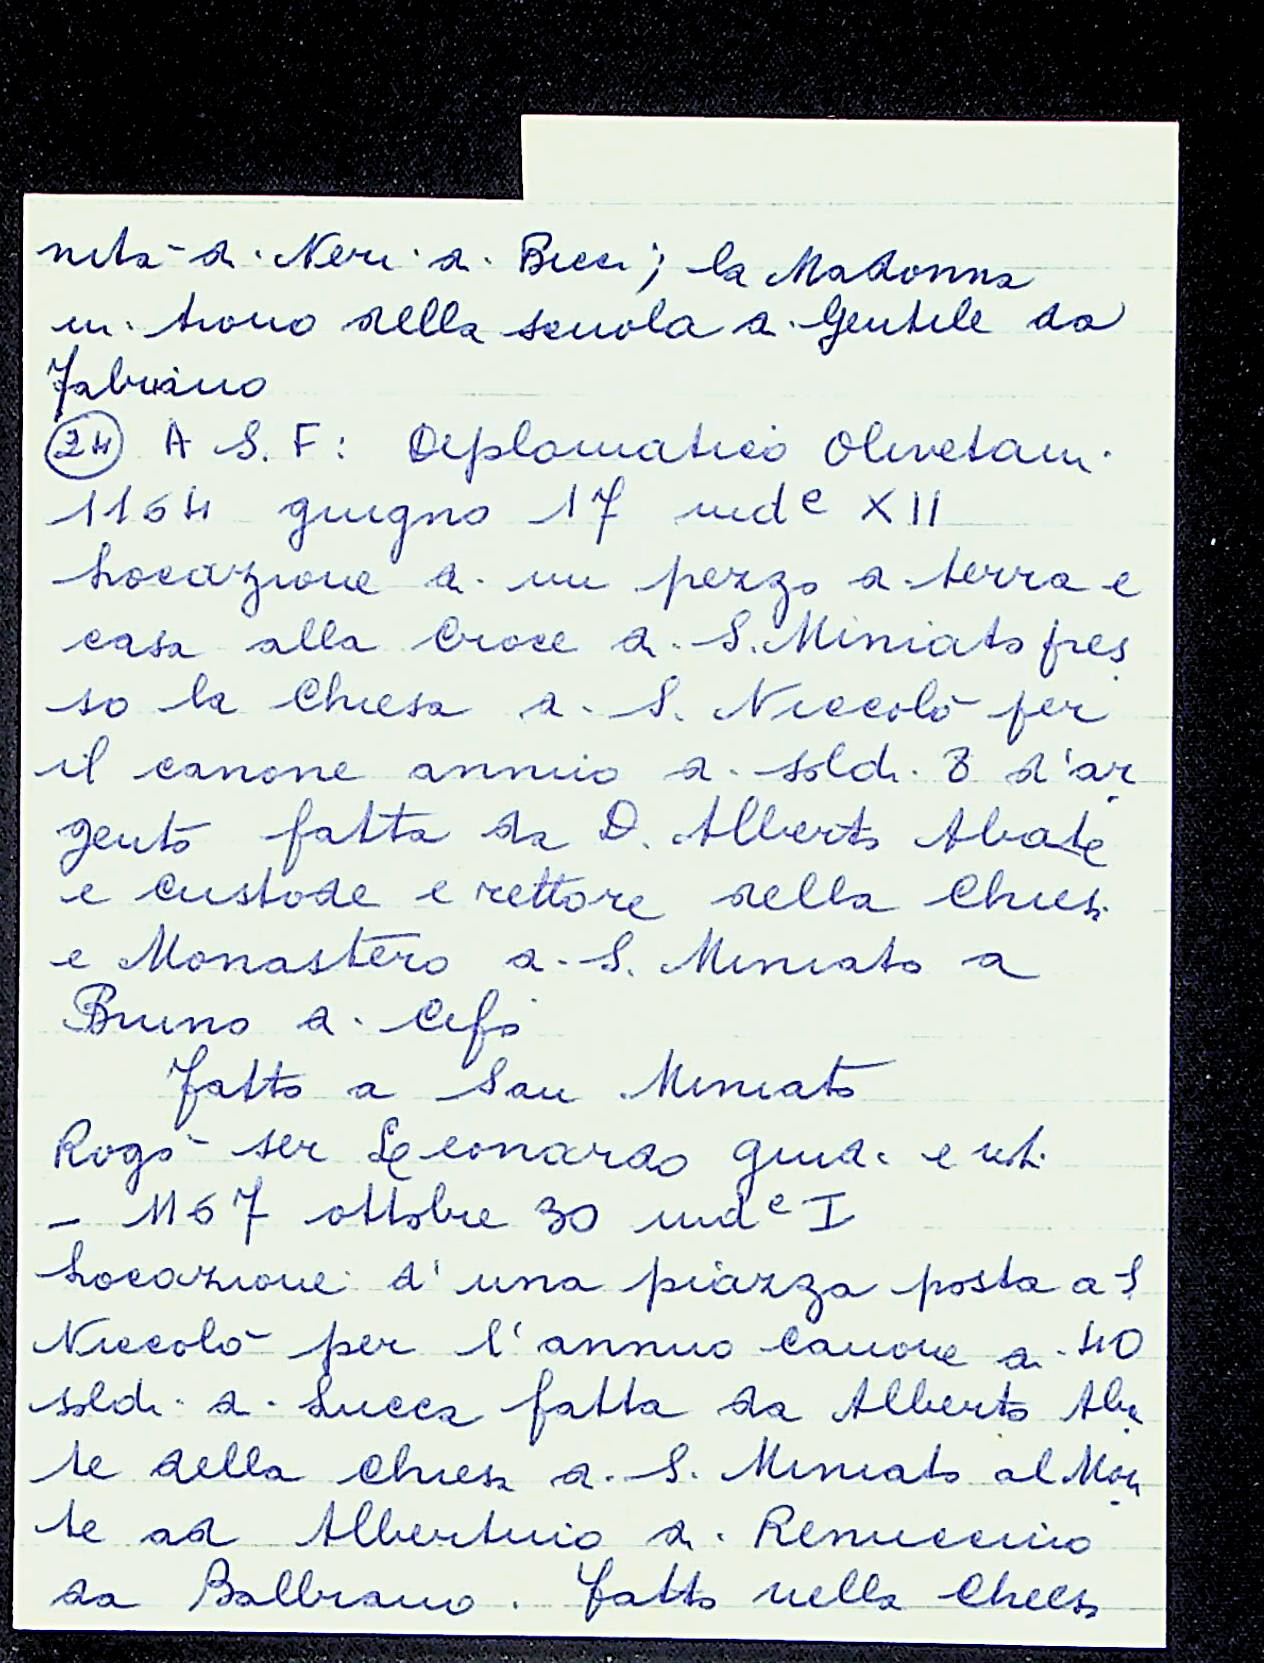 nità di Neri di Bicci; la Madonna
in trono della scuola di Gentile da
Fabriano
24 A S. F: Diplomatico Olivetani
1164 giugno 17 indᵉ XII
Locazione di un pezzo di terra e
casa alla Croce di S. Miniato pres
so la Chiesa di S. Niccolò per
il canone annuo di soldi 8 d'ar
gento fatta da D. Alberto Abate
e custode e rettore della Chiesa
e Monastero di S. Miniato a
Bruno di Cefo
Fatto a San Miniato
Rogò ser Leonardo giud. e not.
– 1167 ottobre 30 indᵉ I
Locazione d'una piazza posta a S
Niccolò per l'annuo canone di 40
soldi di Lucca fatta da Alberto Aba
te della Chiesa di S. Miniato al Mon
te ad Albertino di Renuccino
da Balbiano. Fatto nella Chiesa